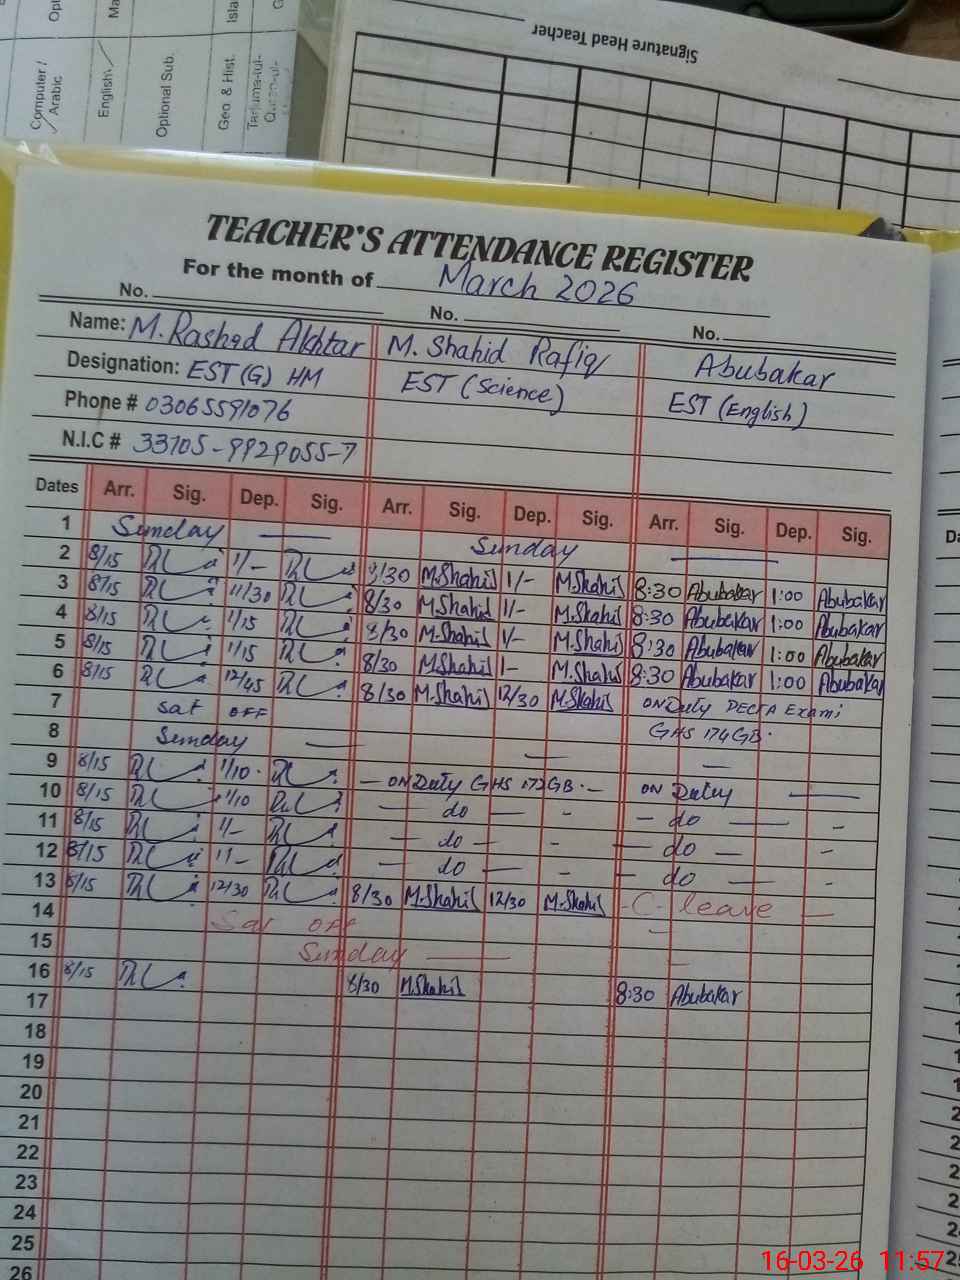 Computer / Arabic
English
Optional Sub.
Geo & Hist.
Signature Head Teacher
TEACHER'S ATTENDANCE REGISTER
For the month of March 2026
No. No. No.
Name: M. Rashed Akhtar M. Shahid Rafiq Abubakar
Designation: EST (G) HM EST (Science) EST (English)
Phone # 03065591076
N.I.C # 33105-9929055-7
Dates Arr. Sig. Dep. Sig. Arr. Sig. Dep. Sig. Arr. Sig. Dep. Sig.
1 Sunday Sunday
2 8/15 1/- 8/30 M.Shahid 1/- M.Shahid 8:30 Abubakar 1:00 Abubakar
3 8/15 11/30 8/30 M.Shahid 1/- M.Shahid 8:30 Abubakar 1:00 Abubakar
4 8/15 1/15 8/30 M.Shahid 1/- M.Shahid 8:30 Abubakar 1:00 Abubakar
5 8/15 1/15 8/30 M.Shahid 1- M.Shahid 8:30 Abubakar 1:00 Abubakar
6 8/15 12/45 8/30 M.Shahid 12/30 M.Shahid ON Duty PECTA Exami
7 Sat OFF GHS 174 GB.
8 Sunday
9 8/15 1/10 - ON Duty GHS 172 GB. - ON Duty
10 8/15 1/10 do do
11 8/15 1/- do do
12 8/15 1/- do do
13 8/15 12/30 8/30 M.Shahid 12/30 M.Shahid C-leave
14 Sat OFF
15 Sunday
16 8/15 8/30 M.Shahid 8:30 Abubakar
17
18
19
20
21
22
23
24
25
26
16-03-26 11:57